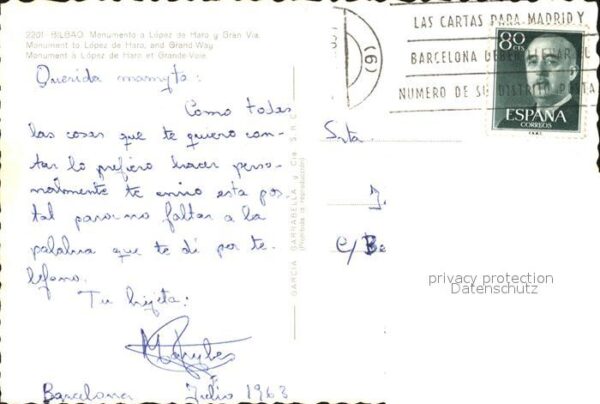 2201 BILBAO. Monumento a López de Haro y Gran Vía.
Monument to López de Haro, and Grand Way
Monument à López de Haro et Grande-Voie.
Querida mamyta:
Como todas
las cosas que te quiero con-
tar lo prefiero hacer perso-
nalmente te envio esta pos-
tal para no faltar a la
palabra que te dí por te-
lefono.
Tu hijeta:
Barcelona Julio 1963
GARCIA GARRABELLA y Cía
(Prohibida la reproducción)
(6)
LAS CARTAS PARA MADRID Y
BARCELONA DEBEN LLEVAR EL
NUMERO DE SU DISTRITO POSTAL
80 CTS
ESPAÑA
CORREOS
Srta.
J.
C/ B
privacy protection
Datenschutz